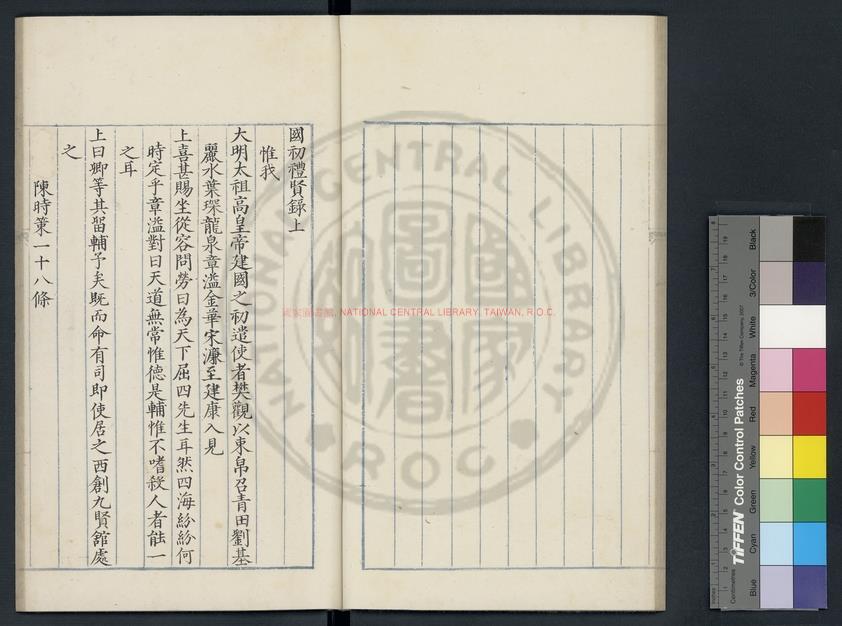 國初禮賢錄上
惟我
大明太祖高皇帝建國之初遣使者樊觀以束帛召青田劉基
麗水葉琛龍泉章溢金華宋濂至建康入見
上喜甚賜坐從容問勞曰為天下屈四先生耳然四海紛紛何
時定乎章溢對曰天道無常惟德是輔惟不嗜殺人者能一
之耳
上曰卿等其留輔予矣既而命有司即使居之西創九賢館處
之
陳時策一十八條
國家圖書館, NATIONAL CENTRAL LIBRARY, TAIWAN, R.O.C.
NATIONAL CENTRAL LIBRARY
ROC
國家圖書館
TIFFEN Color Control Patches
© The Tiffen Company, 2007
Centimetres
Blue
Cyan
Green
Yellow
Red
Magenta
White
3/Color
Black